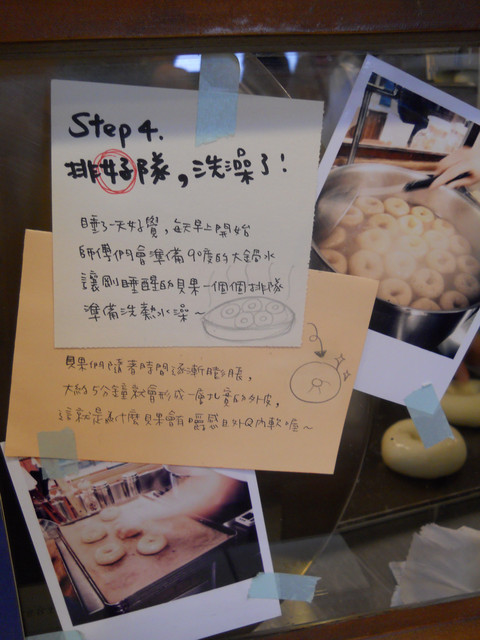 Step 4.
排好隊，洗澡了!
睡了一天好覺，每天早上開始
師傅們會準備90度的大鍋水
讓剛睡醒的貝果一個個排隊
準備洗熱水澡~
貝果們隨著時間逐漸膨脹，
大約5分鐘就會形成一層扎實的外皮，
這就是為什麼貝果會有嚼感且外Q內軟喔~